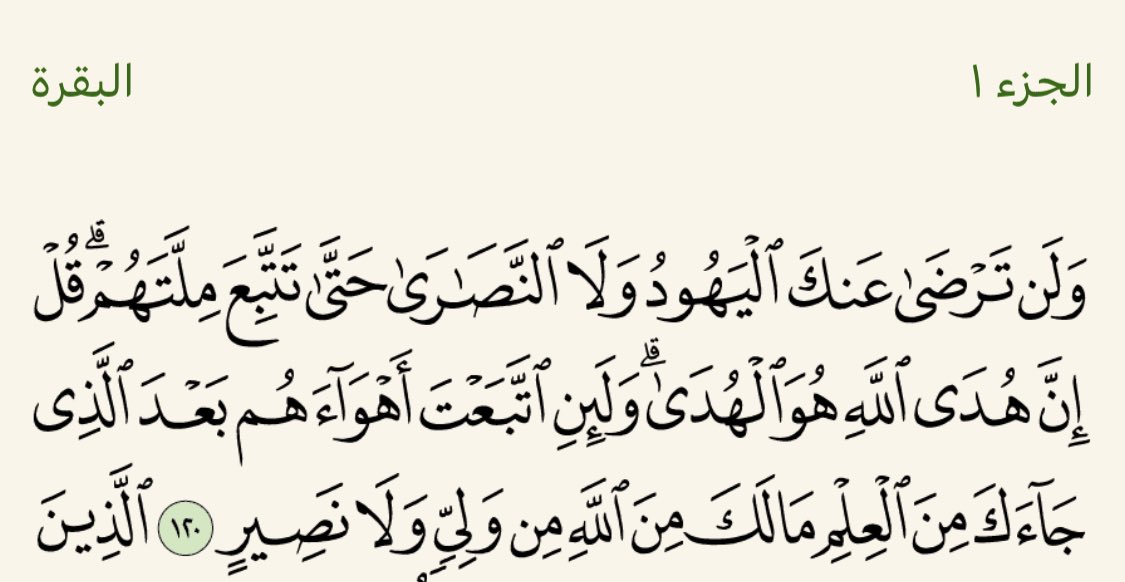 الجزء ١
البقرة
وَلَن تَرْضَىٰ عَنكَ ٱلْيَهُودُ وَلَا ٱلنَّصَـٰرَىٰ حَتَّىٰ تَتَّبِعَ مِلَّتَهُمْ ۗ قُلْ
إِنَّ هُدَى ٱللَّهِ هُوَ ٱلْهُدَىٰ ۗ وَلَئِنِ ٱتَّبَعْتَ أَهْوَآءَهُم بَعْدَ ٱلَّذِى
جَآءَكَ مِنَ ٱلْعِلْمِ مَا لَكَ مِنَ ٱللَّهِ مِن وَلِىٍّ وَلَا نَصِيرٍ ١٢٠ ٱلَّذِينَ